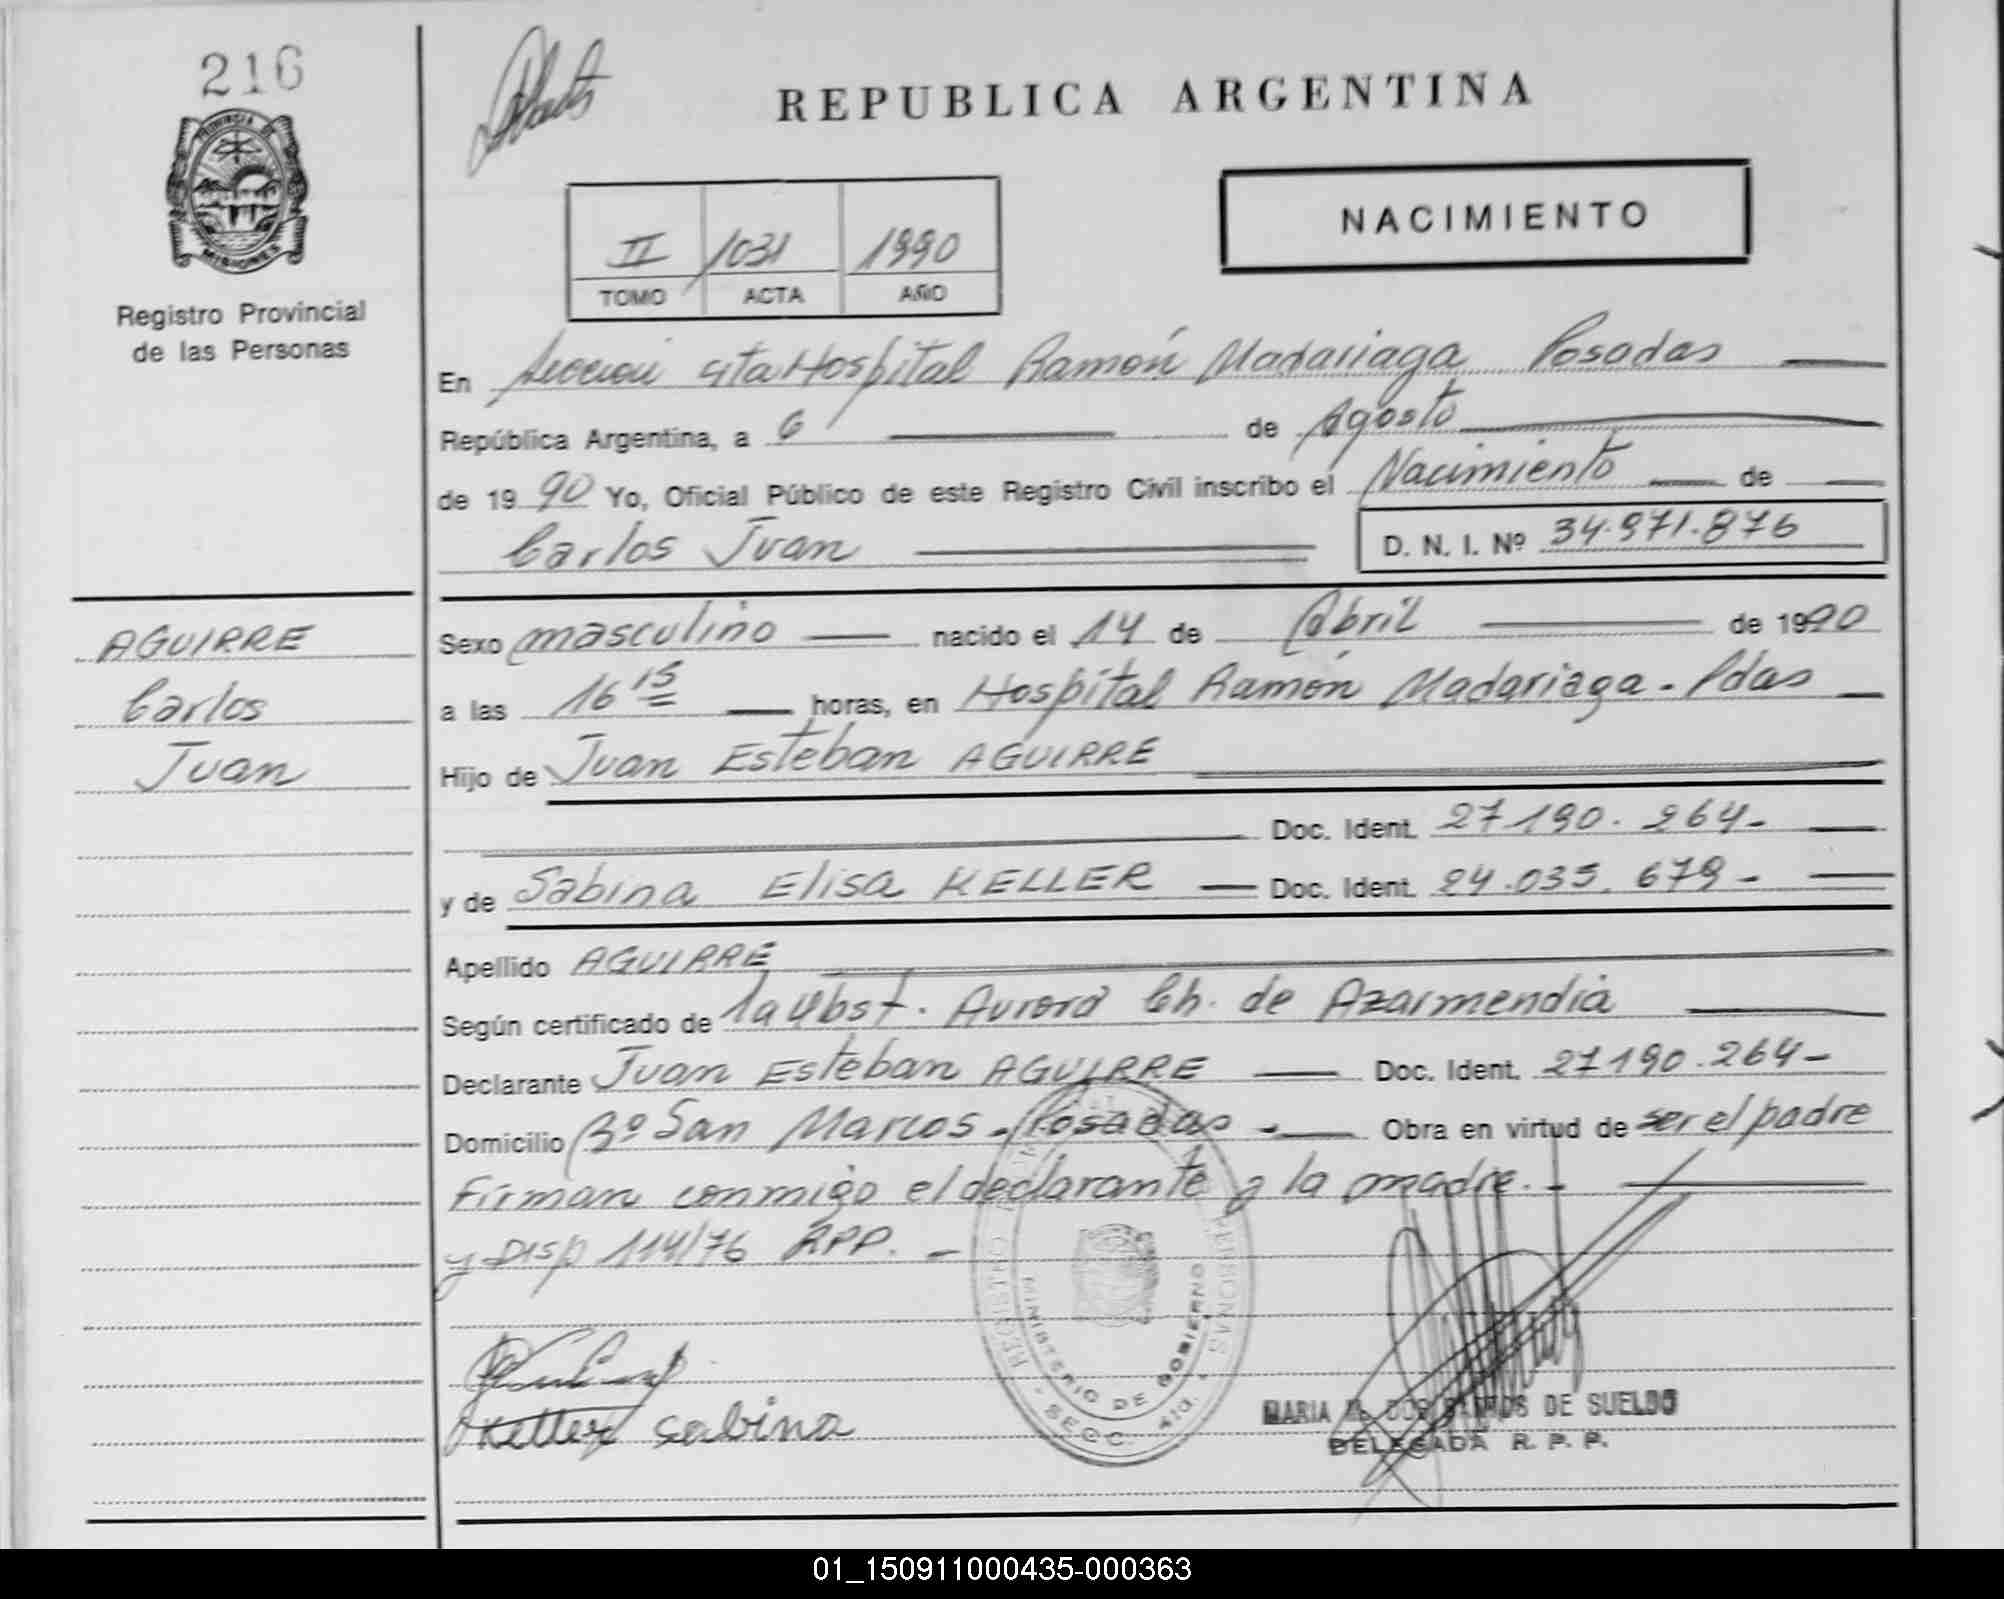 216
REPUBLICA ARGENTINA
PROVINCIA DE
MISIONES
NACIMIENTO
II 1031 1990
TOMO ACTA AÑO
Registro Provincial
de las Personas
En Sección 4ta Hospital Ramón Madariaga Posadas
República Argentina, a 6 de Agosto
de 1990 Yo, Oficial Público de este Registro Civil inscribo el Nacimiento de
Carlos Juan D. N. I. Nº 34.971.876
AGUIRRE
Carlos
Juan
Sexo masculino nacido el 14 de Abril de 1990
a las 16 15 horas, en Hospital Ramón Madariaga - Pdas
Hijo de Juan Esteban AGUIRRE
Doc. Ident. 27190.264-
y de Sabina Elisa KELLER Doc. Ident. 24.035.679-
Apellido AGUIRRE
Según certificado de la Obst. Aurora Ch. de Azarmendia
Declarante Juan Esteban AGUIRRE Doc. Ident. 27190.264-
Domicilio Bº San Marcos - Posadas - Obra en virtud de ser el padre
Firman conmigo el declarante y la madre. -
y Disp 114/76 RPP. -
REGISTRO PERSONAS
MINISTERIO DE GOBIERNO
- SECC. 4ta. -
Keller Sabina
MARIA DE SUELDO
DELEGADA R. P. P.
01_150911000435-000363